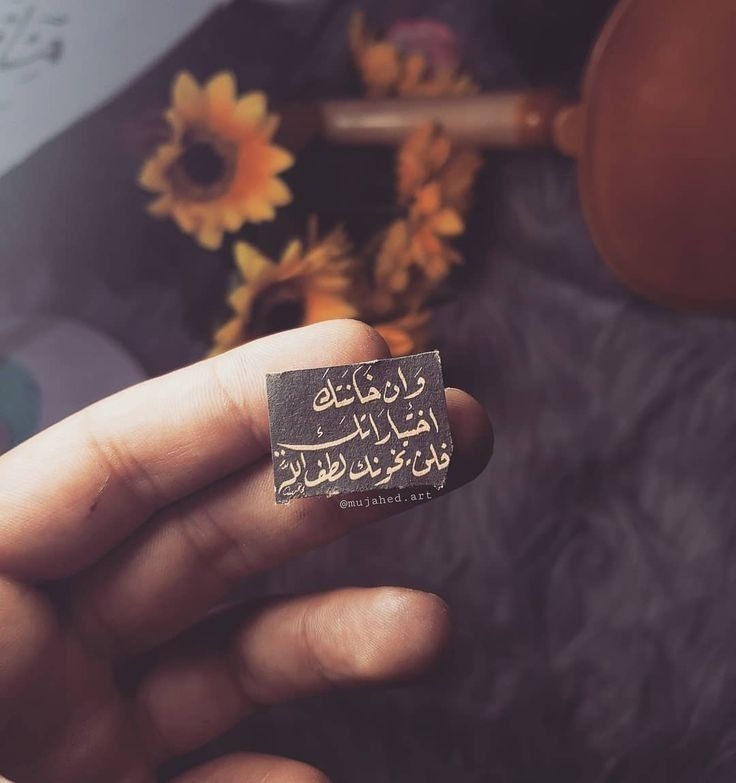 وَان خَانَتكَ
اختبَاراتكَ
فلن يخونك لطف الله
@mujahed.art